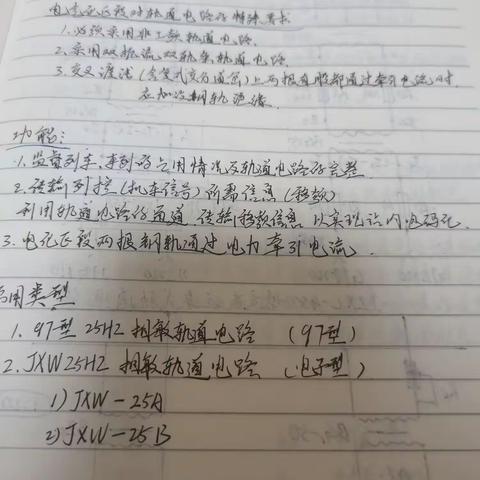 电气化区段对轨道电路的特殊要求
1.必须采用非工频轨道电路.
2.采用双扼流双轨条轨道电路.
3.交叉渡线(含复式交分道岔)上两根直股都通过牵引电流时.
应加设钢轨绝缘.
功能:
1.监督列车、车列的占用情况及轨道电路的完整.
2.传输列控(机车信号)所需信息(移频)
利用轨道电路的通道,传输移频信息,以实现站内电码化.
3.电化区段两根钢轨通过电力牵引电流.
用类型
1.97型25HZ相敏轨道电路 (97型)
2.JXW25HZ相敏轨道电路 (电子型)
1)JXW-25A
2)JXW-25B